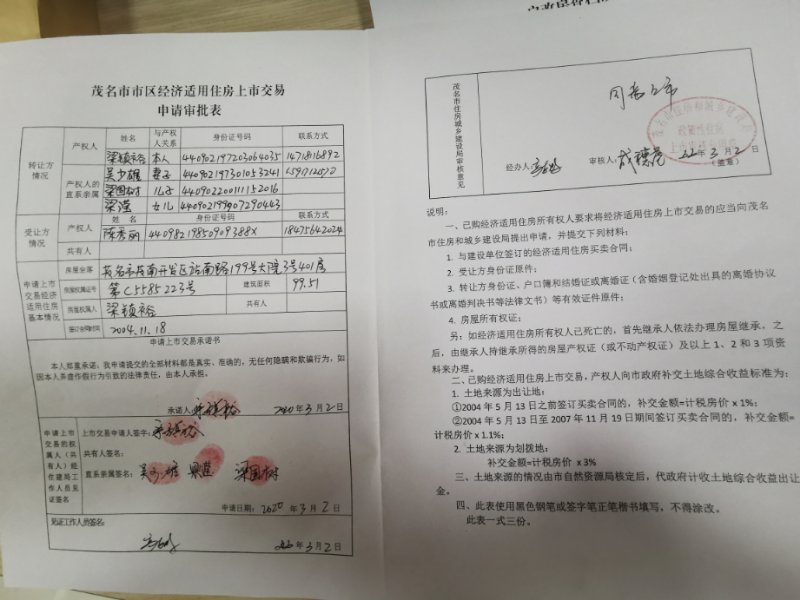 茂名市市区经济适用住房上市交易
申请审批表
转让方情况
产权人
姓名 与产权人关系 身份证号码 联系方式
梁镇裕 本人 440902197203064035 14718116892
产权人的直系亲属
吴少雄 妻子 440902197301053241
梁国材 儿子 440902200111152016
梁滢 女儿 440902199907290443
受让方情况
姓名 身份证号码 联系方式
产权人 陈秀丽 44098219850909388X 18475642024
共有人
申请上市交易经济适用住房基本情况
房屋坐落 茂名市茂南开发区站南路199号大院3号401房
房屋权属证号 第C5585223号 建筑面积 99.51
房屋权属人 梁镇裕 共有人
签订合同时间 2004.11.18
申请上市交易承诺书
本人郑重承诺，我申请提交的全部材料都是真实、准确的，无任何隐瞒和欺骗行为，如
因本人弄虚作假行为引致的法律责任，由本人承担。
承诺人： 梁镇裕 2020年3月2日
申请上市交易的权属人（共有人）经住建局工作人员见证签名
上市交易申请人签字： 梁镇裕
共有人签名：
直系亲属签名： 吴少雄 梁滢 梁国材
申请日期：2020年3月2日
见证工作人员签名：
2020年3月2日
茂名市住房城乡建设局审核意见
同意上市
经办人： 审核人： 年3月2日
（盖章）
说明：
一、已购经济适用住房所有权人要求将经济适用住房上市交易的应当向茂名
市住房和城乡建设局提出申请，并提交下列材料：
1. 与建设单位签订的经济适用住房买卖合同；
2. 受让方身份证原件；
3. 转让方身份证、户口簿和结婚证或离婚证（含婚姻登记处出具的离婚协议
书或离婚判决书等法律文书）等有效证件原件；
4. 房屋所有权证；
另，如经济适用住房所有权人已死亡的，首先继承人依法办理房屋继承，之
后，由继承人持继承所得的房屋产权证（或不动产权证）及以上1、2和3项资
料来办理。
二、已购经济适用住房上市交易，产权人向市政府补交土地综合收益标准为：
1. 土地来源为出让地：
①2004年5月13日之前签订买卖合同的，补交金额=计税房价 x 1%；
②2004年5月13日至2007年11月19日期间签订买卖合同的，补交金额=
计税房价 x 1.1%；
2. 土地来源为划拨地：
补交金额=计税房价 x 3%
三、土地来源的情况由市自然资源局核定后，代政府计收土地综合收益出让
金。
四、此表使用黑色钢笔或签字笔正笔楷书填写，不得涂改。
此表一式三份。